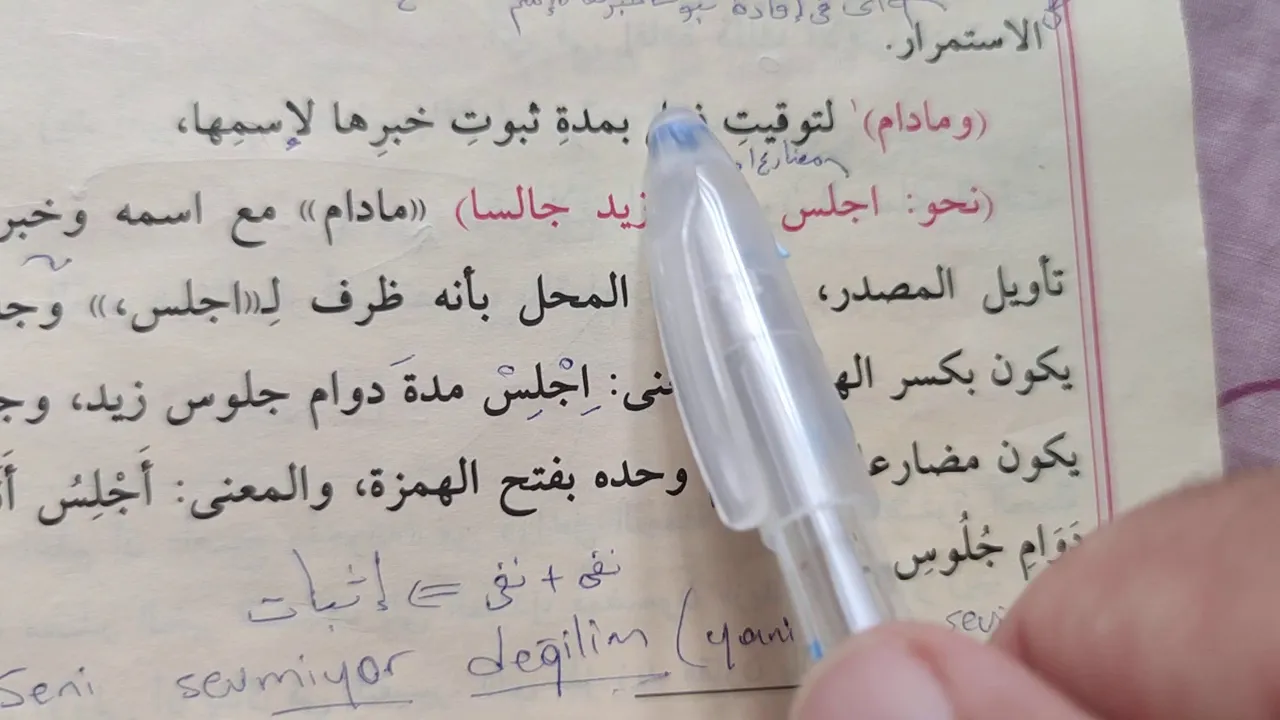 الاستمرار.
(ومادام)' لتوقيتِ بمدةِ ثبوتِ خبرِها لإسمِها،
مضارع
(نحو: اجلس زيد جالسا) «مادام» مع اسمه وخبر
تأويل المصدر، المحل بأنه ظرف لِـ«اجلس،» وجا
يكون بكسر اله نى: اِجْلِسْ مدةَ دوام جلوس زيد، وجـ
يكون مضارعا وحده بفتح الهمزة، والمعنى: أَجْلِسُ أَنَـ
دَوَامِ جُلُوسِ
نفى + نفى = إثبات
Seni sevmiyor değilim (yani sevi